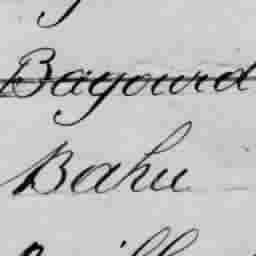 Bayourd
Bahu